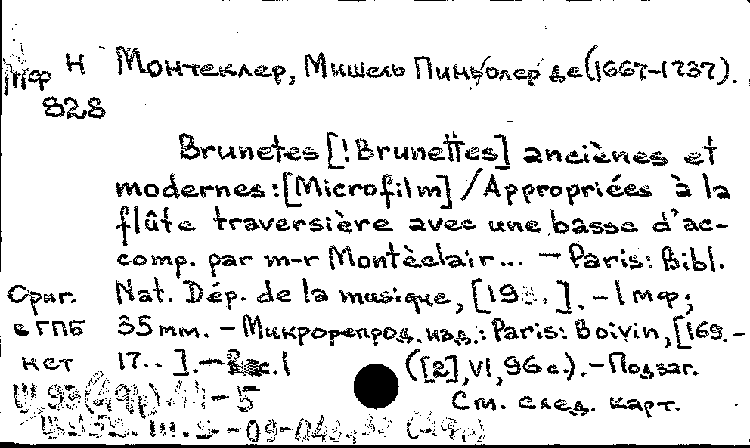 Н Монтеклер, Мишель Пиньолер де (1667-1737).
мф
828
Brunetes [! Brunettes] anciènes et
modernes: [Microfilm] / Appropriées à la
flûte traversière avec une basse d'ac-
comp. par m-r Montèclair... – Paris: Bibl.
Ориг. Nat. Dép. de la musique, [19 . ]. – 1 мф;
в ГПБ 35 mm. – Микрорепрод. изд.: Paris: Boivin, [169. -
нет 17.. ]. – 1 ([2], VI, 96 с.). – Подзаг.
См. след. карт.